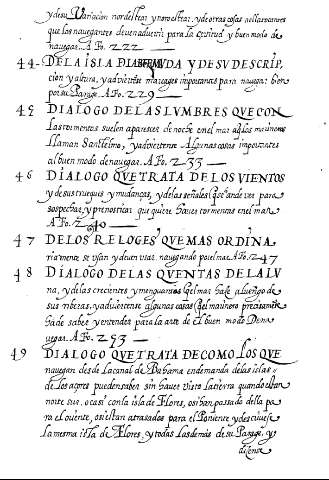 y desu Variacion nordestear y noroestear. y de otras cosas nessesarias
que los navegantes deuen aduertir para la quitud y buen modo de
navegar. A Fo. 222
44- DE LA ISLA DIABERMUDA Y DE SV DESCRIP,
cion y altura, y advierte marcages importantes para navegar bien
por su Parage. A Fo. 229
45 DIALOGO DE LAS LVMBRES QVE CON
Las tormentas suelen aparescer de noche en el mar a los marineros
llaman Santelmo, y advierte Algunas cosas importantes
al buen modo de navegar. A Fo. 233
46 DIALOGO QVE TRATA DE LOS VIENTOS
y de sus trueques y mudanças, y de las señales que an de ver para
sospechar y pronosticar que quiere haver tormentas en el mar
A Fo. 240
47 DE LOS RELOGES QVE MAS ORDINA,
riamente se usan y deuen usar. navegando por el mar. A Fo. 247
48 DIALOGO DE LAS QVENTAS DE LA LV
na, y de las crecientes y menguantes que el mar haze a luengo de
sus riberas, y advierte algunas cosas que el marinero precisamente
ha de saber y entender para la arte de el buen modo De na
vegar. A Fo. 293
49 DIALOGO QVE TRATA DE COMO LOS QVE
navegan desde La canal de Bahama en demanda de las islas
de los açores pueden saber sin haver visto La tierra quando estan
norte sur. o casi con la isla de Flores, o si han passado della pa
ra el oriente, o si estan atrasados para el Poniente y descriuese
La mesma isla de Flores, y todas las demas de su Parage, y
dizense